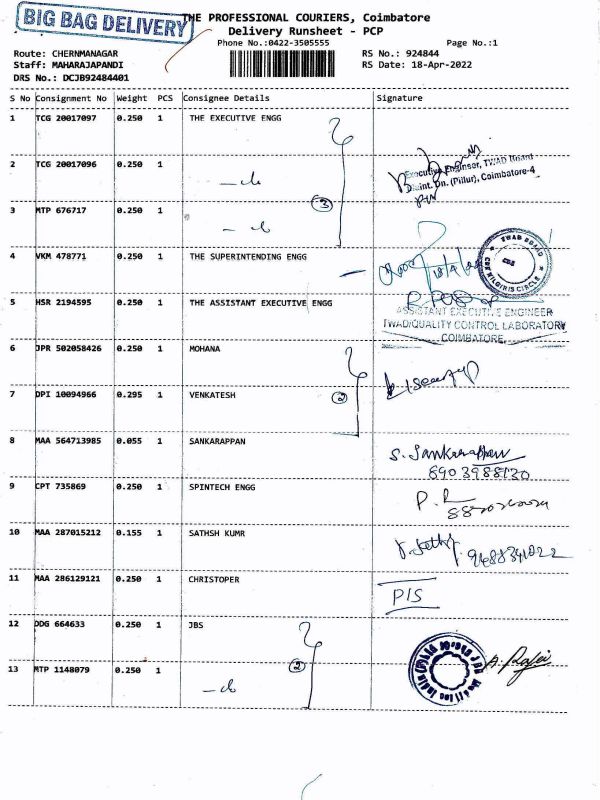 BIG BAG DELIVERY
THE PROFESSIONAL COURIERS, Coimbatore
Delivery Runsheet - PCP
Phone No.:0422-3505555 Page No.:1
Route: CHERNMANAGAR RS No.: 924844
Staff: MAHARAJAPANDI RS Date: 18-Apr-2022
DRS No.: DCJB92484401
S No Consignment No Weight PCS Consignee Details Signature
1 TCG 20017097 0.250 1 THE EXECUTIVE ENGG
2 TCG 20017096 0.250 1 Executive Engineer, TWAD Board
Maint. Dn. (Pillur), Coimbatore-4
3 MTP 676717 0.250 1 3
4 VKM 478771 0.250 1 THE SUPERINTENDING ENGG TWAD BOARD CBE NILGIRIS CIRCLE
5 HSR 2194595 0.250 1 THE ASSISTANT EXECUTIVE ENGG ASSISTANT EXECUTIVE ENGINEER
TWAD/QUALITY CONTROL LABORATORY
COIMBATORE
6 JPR 502058426 0.250 1 MOHANA
7 DPI 10094966 0.295 1 VENKATESH 2
8 MAA 564713985 0.055 1 SANKARAPPAN S. Sankarappan
8903988130
9 CPT 735869 0.250 1 SPINTECH ENGG
10 MAA 287015212 0.155 1 SATHSH KUMR 9688341022
11 MAA 286129121 0.250 1 CHRISTOPER P/S
12 DDG 664633 0.250 1 JBS
13 MTP 1148079 0.250 1 2 A. Raja